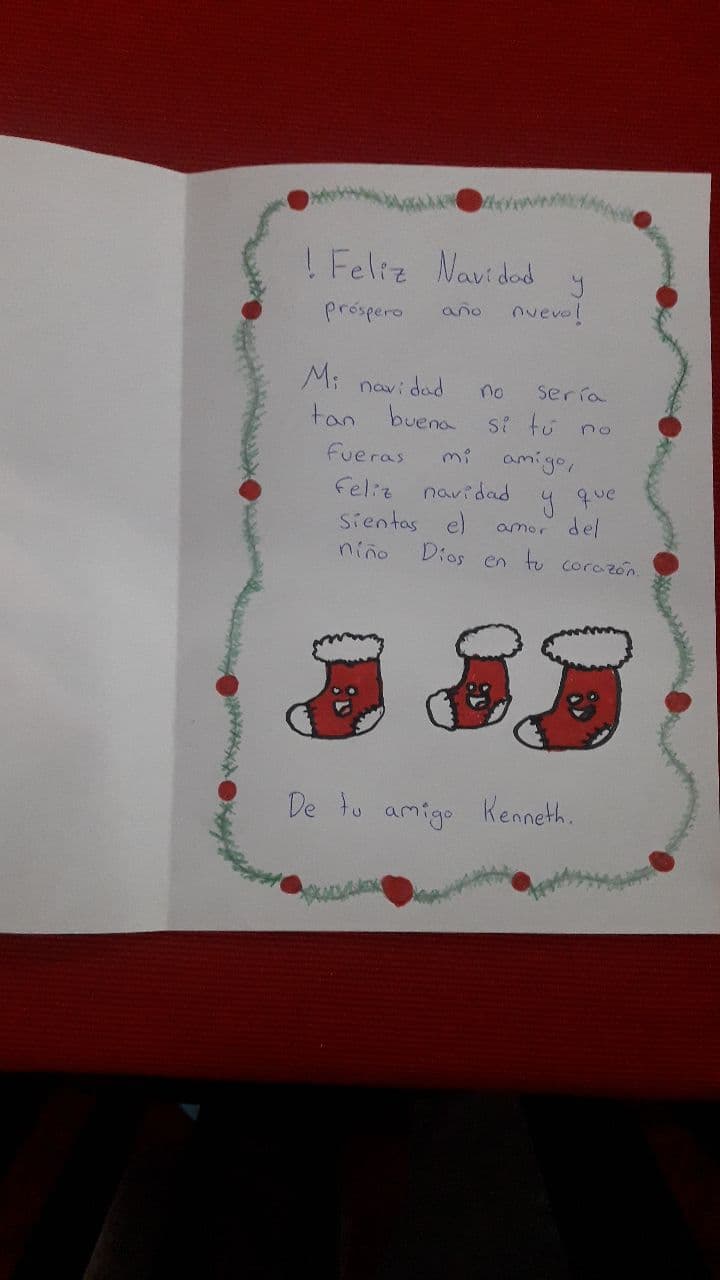 ! Feliz Navidad y
próspero año nuevo!
Mi navidad no sería
tan buena si tú no
fueras mi amigo,
feliz navidad y que
sientas el amor del
niño Dios en tu corazón.
De tu amigo Kenneth.